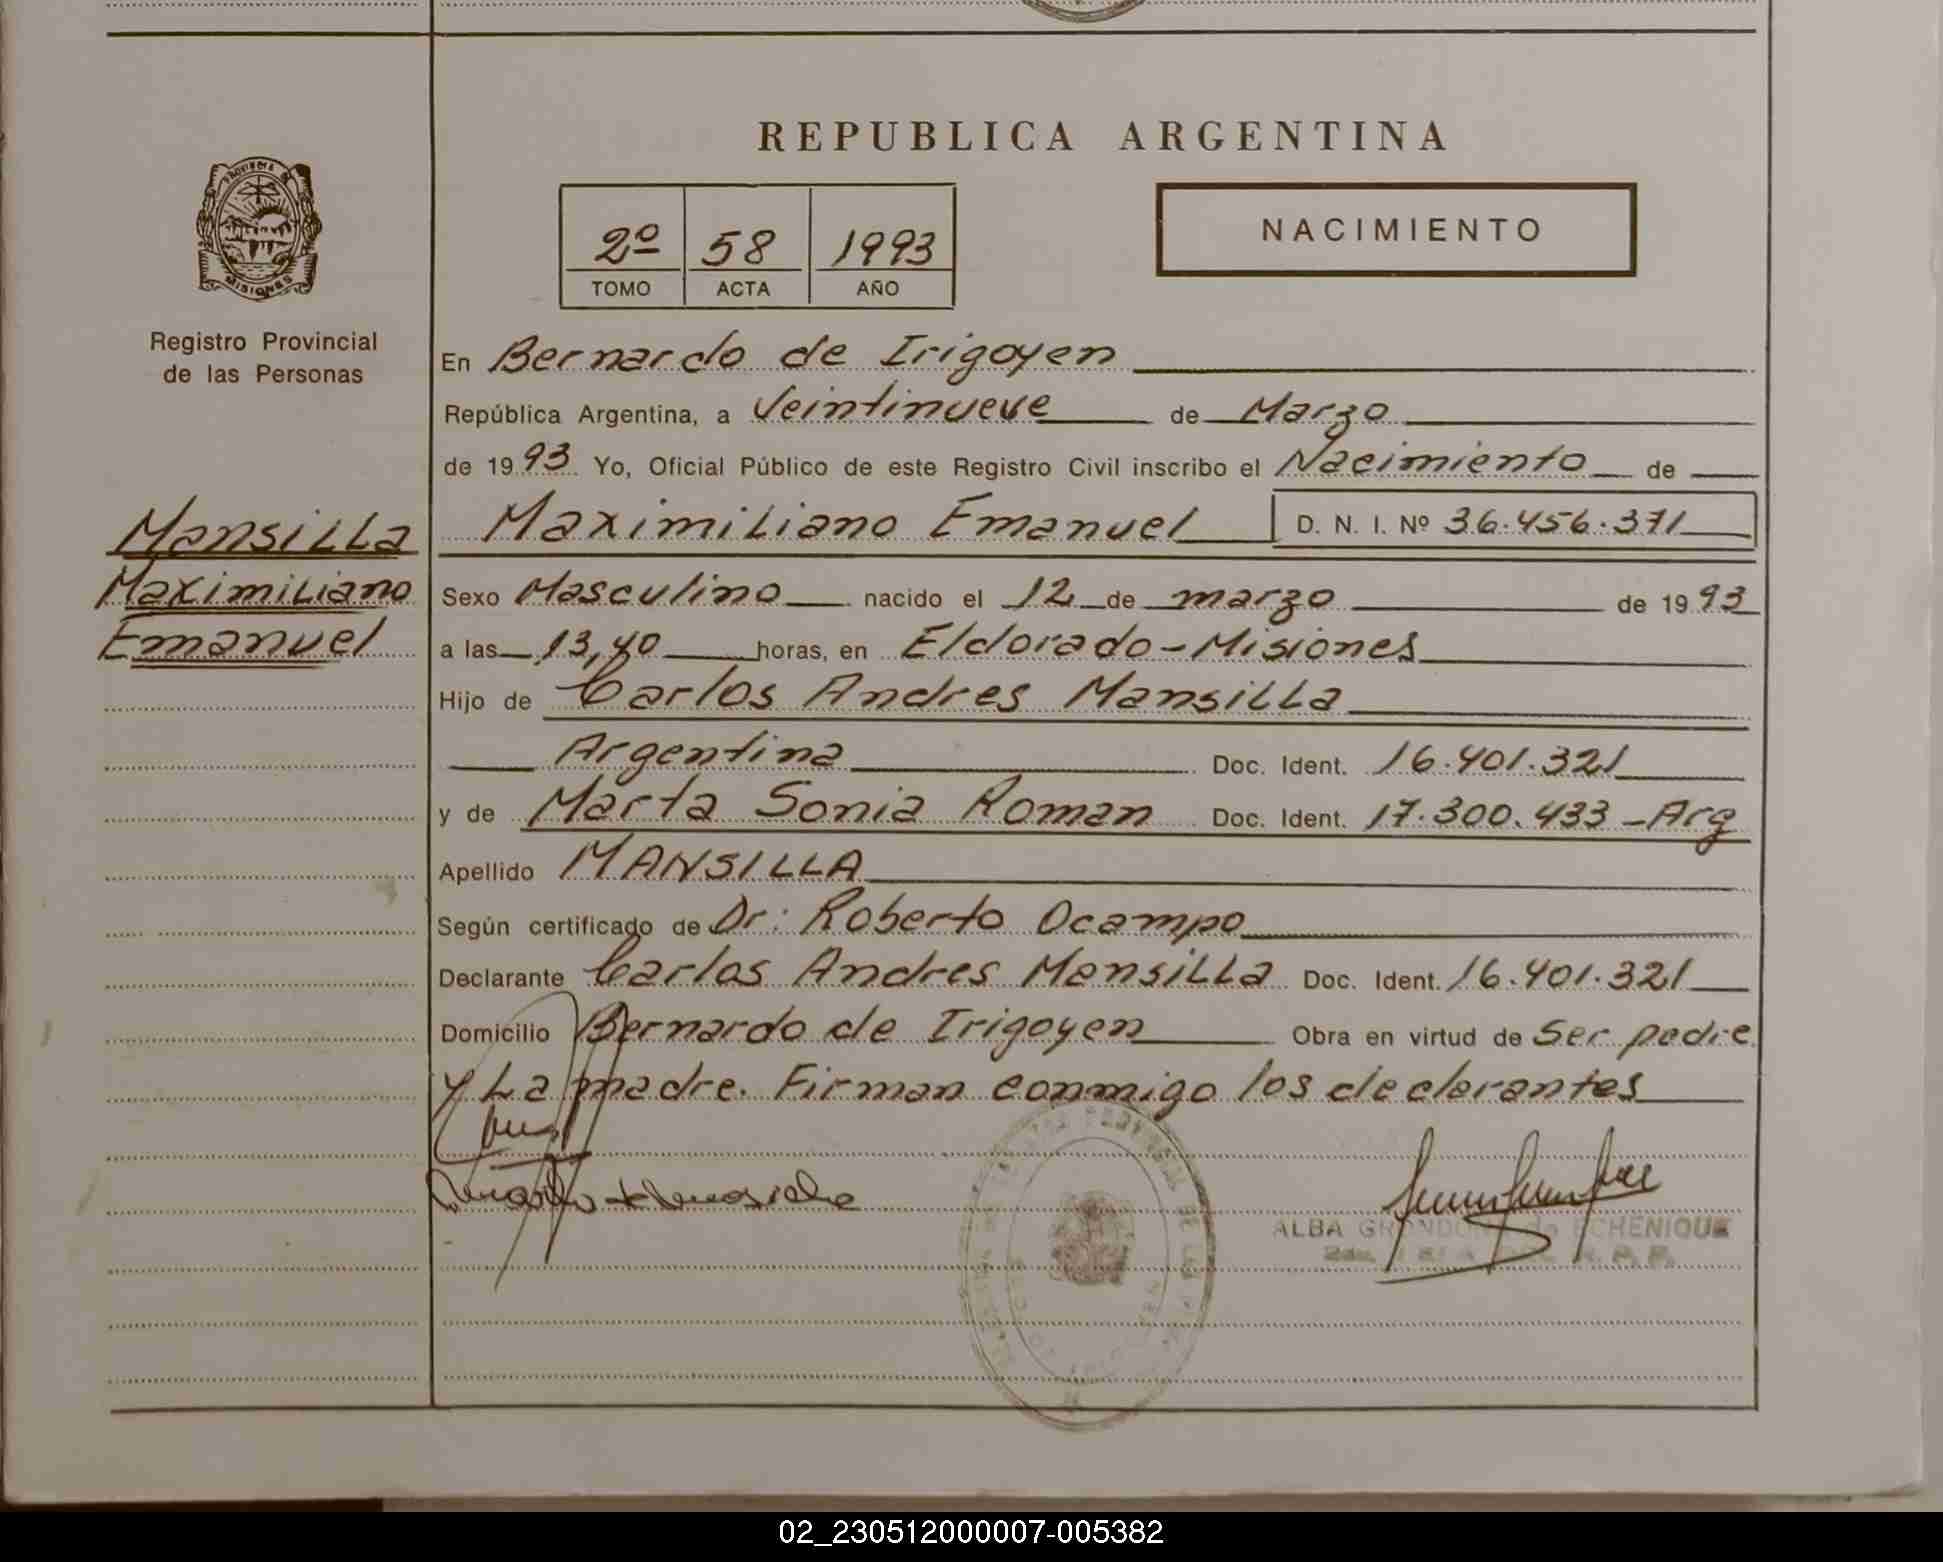 REPUBLICA ARGENTINA
PROVINCIA DE
MISIONES
Registro Provincial
de las Personas
2º 58 1993
TOMO ACTA AÑO
NACIMIENTO
En Bernardo de Irigoyen
República Argentina, a Veintinueve de Marzo
de 1993. Yo, Oficial Público de este Registro Civil inscribo el Nacimiento de
Mansilla
Maximiliano
Emanuel
Maximiliano Emanuel D. N. I. Nº 36.456.371
Sexo Masculino nacido el 12 de marzo de 1993
a las 13,40 horas, en Eldorado-Misiones
Hijo de Carlos Andres Mansilla
Argentina Doc. Ident. 16.401.321
y de Marta Sonia Roman Doc. Ident. 17.300.433-Arg
Apellido MANSILLA
Según certificado de Dr: Roberto Ocampo
Declarante Carlos Andres Mansilla Doc. Ident. 16.401.321
Domicilio Bernardo de Irigoyen Obra en virtud de Ser padre
y La madre. Firman conmigo los declarantes
ALBA de ECHENIQUE
02_230512000007-005382